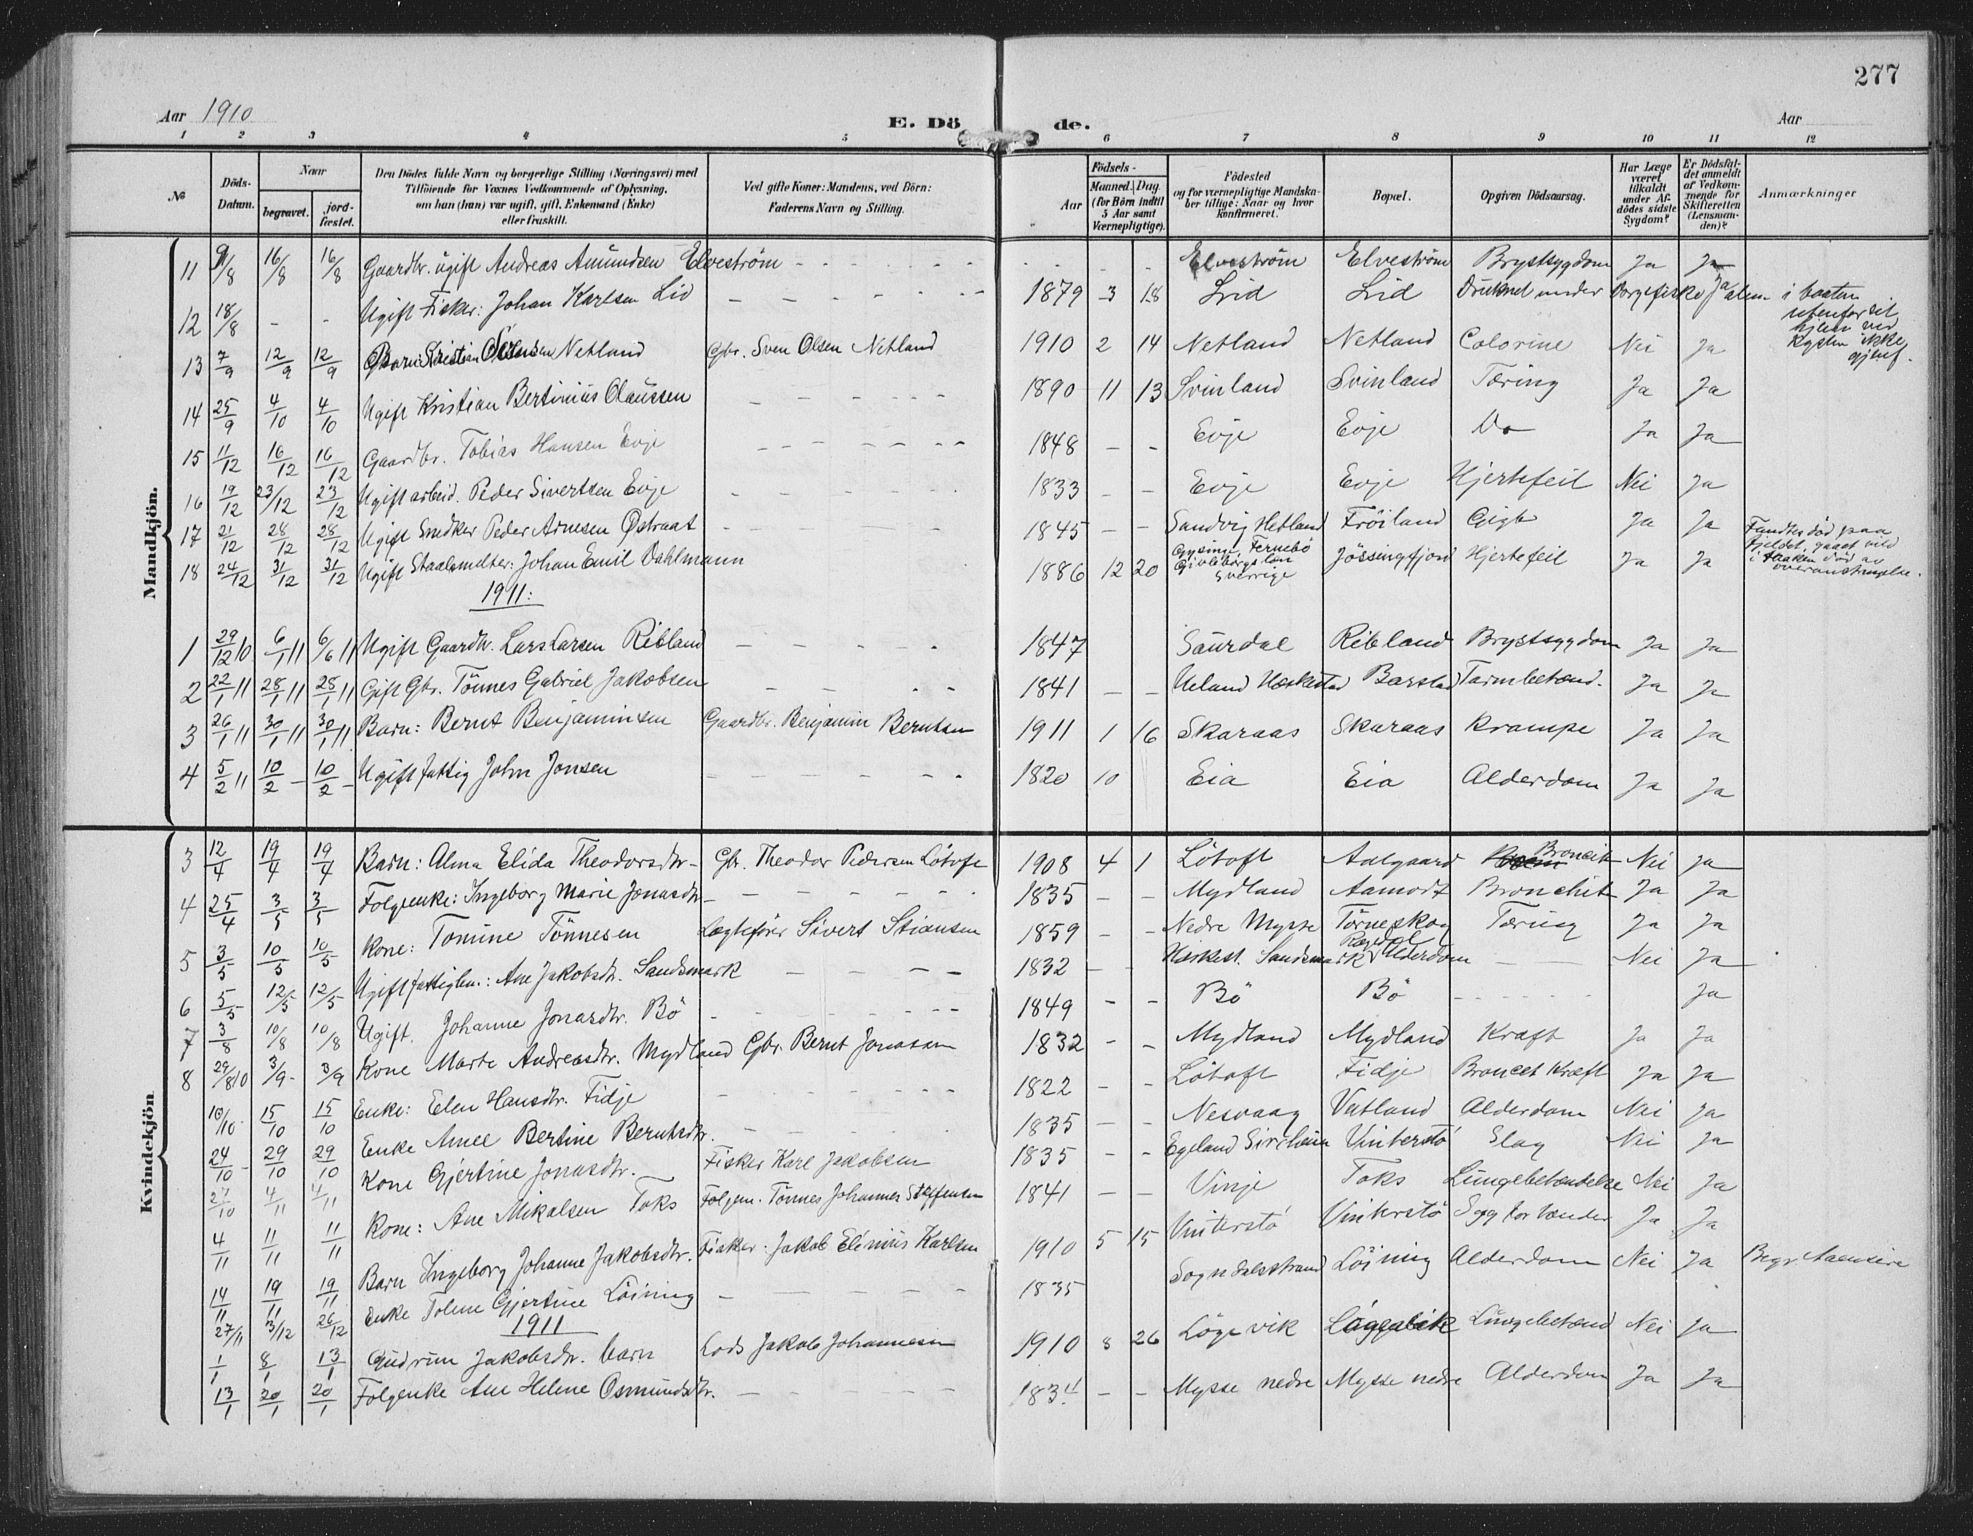 277
Aar 1910
E. Dö de.
Aar
1 2 3 4 5 6 7 8 9 10 11 12
№
Döds-Datum.
Naar
begravet.
jord-fæstet.
Den Dödes fulde Navn og borgerlige Stilling (Næringsvei) med
Tilföiende for Voxnes Vedkommende af Oplysning,
om han (hun) var ugift, gift, Enkemand (Enke)
eller fraskilt.
Ved gifte Koner: Mandens, ved Börn:
Faderens Navn og Stilling.
Födsels-
Aar
Maaned. Dag
(for Börn indtil
5 Aar samt
Værnepligtige).
Födested
og for værnepligtige Mandska-
ber tillige: Naar og hvor
konfirmeret.
Bopæl.
Opgiven Dödsaarsag.
Har Læge
været
tilkaldt
under Af-
dödes sidste
Sygdom?
Er Dödsfal-
det anmeldt
af Vedkom-
mende for
Skifteretten
(Lensman-
den)?
Anmærkninger
Mandkjön.
11 9/8 16/8 16/8 Gaardbr. ugift Andreas Amundsen Elveström - - - - Elveström Elveström Brystsygdom Ja Ja
12 18/8 - - Ugift Fisker: Johan Karlsen Lid - - - - 1879 3 18 Lid Lid Druknet under Dorgefiske Ja alene i baaten
utenfor sit
hjem ved
Kysten ikke
gjenf.
13 7/9 12/9 12/9 Barn: Kristian Olsen Netland Gbr. Sven Olsen Netland 1910 2 14 Netland Netland Colorine Nei Ja
14 25/9 4/10 4/10 Ugift Kristian Bertinius Claussen - - - - 1890 11 13 Svinland Svinland Tæring Ja Ja
15 11/12 16/12 16/12 Gaardbr. Tobias Hansen Evje - - - - 1848 - - Evje Evje Do Ja Ja
16 19/12 23/12 23/12 Ugift arbeid. Peder Sivertsen Evje - - - - 1833 - - Evje Evje Hjertefeil Nei Ja
17 21/12 28/12 28/12 Ugift Snedker Peder Arnesen Østraat - - - - 1845 - - Sandvig Hetland Fröiland Gigt Ja Ja Fandtes død paa
fjeldet, gaaet vild
i taaken død av
overanstrengelse.
18 24/12 31/12 31/12 Ugift Staalsmelter: Johan Emil Dahlmann 1886 12 20 Gysinge, Fernebö
Gefleborgs län
Sverrige Jössingfjord Hjertefeil Ja Ja
1911:
1 29/12 10 6/1 11 6/6 11 Ugift Gaardbr. Lars Larsen Ribland - - - - 1847 Saurdal Ribland Brystsygdom Ja Ja
2 22/1 11 28/1 11 28/1 11 Gift Gbr. Tönnes Gabriel Jakobsen - - - - 1841 - - Ueland Heskestad Barstad Tarmbetænd. Ja Ja
3 26/1 11 30/1 11 30/1 11 Barn: Bernt Benjaminsen Gaardbr. Benjamin Berntsen 1911 1 16 Skaraas Skaraas Krampe Ja Ja
4 5/2 11 10/2 - 10/2 - Ugift fattig John Jonsen - - - - 1820 10 Eia Eia Alderdom Ja Ja
Kvindekjön
3 12/4 19/4 19/4 Barn: Alma Elida Theodorsdtr. Gbr. Theodor Pedersen Lötoft 1908 4 1 Lötoft Aalgaard Broncit Nei Ja
4 25/4 3/5 3/5 Folgeenke: Ingeborg Marie Jonasdtr. - - - - 1835 - - Mydland Aamodt Bronchit Ja Ja
5 3/5 10/5 10/5 Kone: Tomine Tönnesen Lægtefører Sivert Stiansen 1859 - - Nedre Mysse Törneskog Tæring Ja Ja
6 5/5 12/5 12/5 Ugift fattiglem: Ane Jakobsdtr. Sandsmark - - - 1832 - - Heskest. Sandsmark Alderdom - - Nei Ja
7 3/8 10/8 10/8 Ugift. Johanne Jonasdtr. Bö - - - - 1849 - - Bö Bö - - - - Ja
8 29/8 10 3/9 - 3/9 Kone Marte Andreasdtr. Mydland Gbr. Bernt Jonassen 1832 - - Mydland Mydland Kræft Ja Ja
10/10 15/10 15/10 Enke: Elen Hansdtr. Fidje - - - - 1822 - - Lötoft Fidje Broncet Kræft Ja Ja
24/10 29/10 29/10 Enke Amee Bertine Berntsdtr. - - - - 1835 - - Nesvaag Vatland Alderdom Nei Ja
27/10 4/11 4/11 Kone Gjertine Jonasdtr. Fisker Karl Jakobsen 1835 - - Egeland Sirehéia Vinterstö Slag Nei Ja
4/11 11/11 11/11 Kone: Ane Mikalsen Toks Folgem. Tönnes Johannes Steffensen 1841 - - Vinje Toks Lungebetændelse Nei Ja
14/11 19/11 19/11 Barn Ingeborg Johanne Jakobsdtr. Fisker: Jakob Elinius Karlsen 1910 5 15 Vinterstö Vinterstö Syg for tænder Ja Ja
27/11 3/12 26/12 Enke Tolene Gjertine Löining - - - - 1835 Sogndalsstrand Löining Alderdom Nei Ja Begr.
1911
1/1 8/1 13/1 Gudrun Jakobsdtr. barn Lods Jakob Johannesen 1910 8 26 Lögevik Löggevik Lungebetænd Nei Ja
13/1 20/1 20/1 Folgenke Ane Helene Osmundsdtr. - - - - 1834 - - Mysse nedre Mysse nedre Alderdom Ja Ja